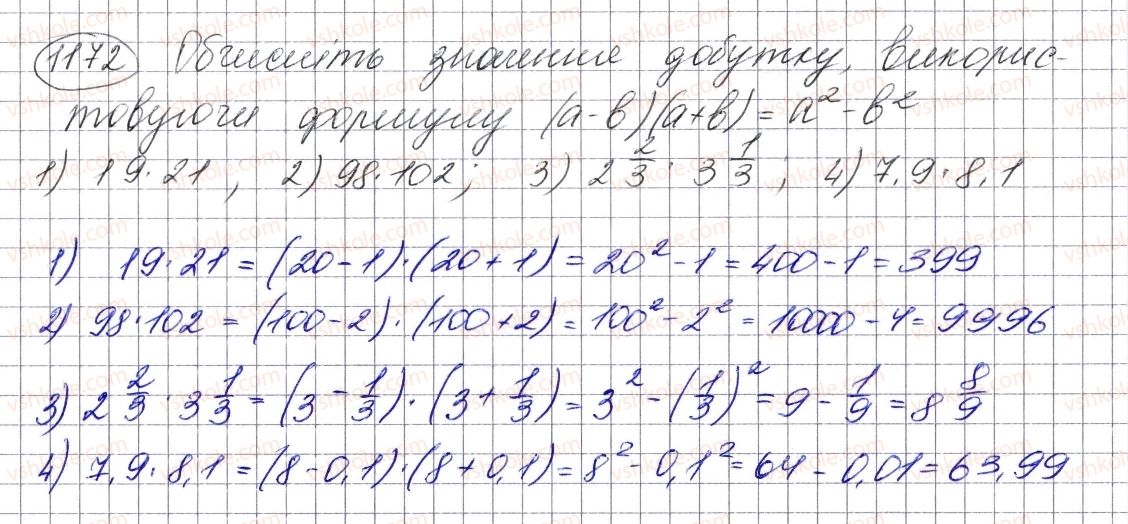 1172 Обчисліть значення добутку, викорис-
товуючи формулу (а-в)(а+в) = а² - в²
1) 19·21, 2) 98·102; 3) 2 2/3 · 3 1/3; 4) 7,9·8,1
1) 19·21 = (20-1)·(20+1) = 20² - 1 = 400 - 1 = 399
2) 98·102 = (100-2)·(100+2) = 100² - 2² = 10000 - 4 = 9996
3) 2 2/3 · 3 1/3 = (3 - 1/3)·(3 + 1/3) = 3² - (1/3)² = 9 - 1/9 = 8 8/9
4) 7,9·8,1 = (8-0,1)·(8+0,1) = 8² - 0,1² = 64 - 0,01 = 63,99